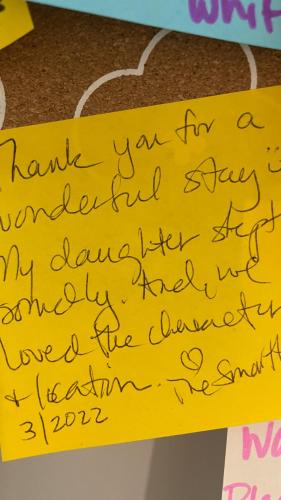 whit
Thank you for a
wonderful stay :)
My daughter slept
soundly. And, we
loved the character
+ location. ♡ The Smart
3/2022